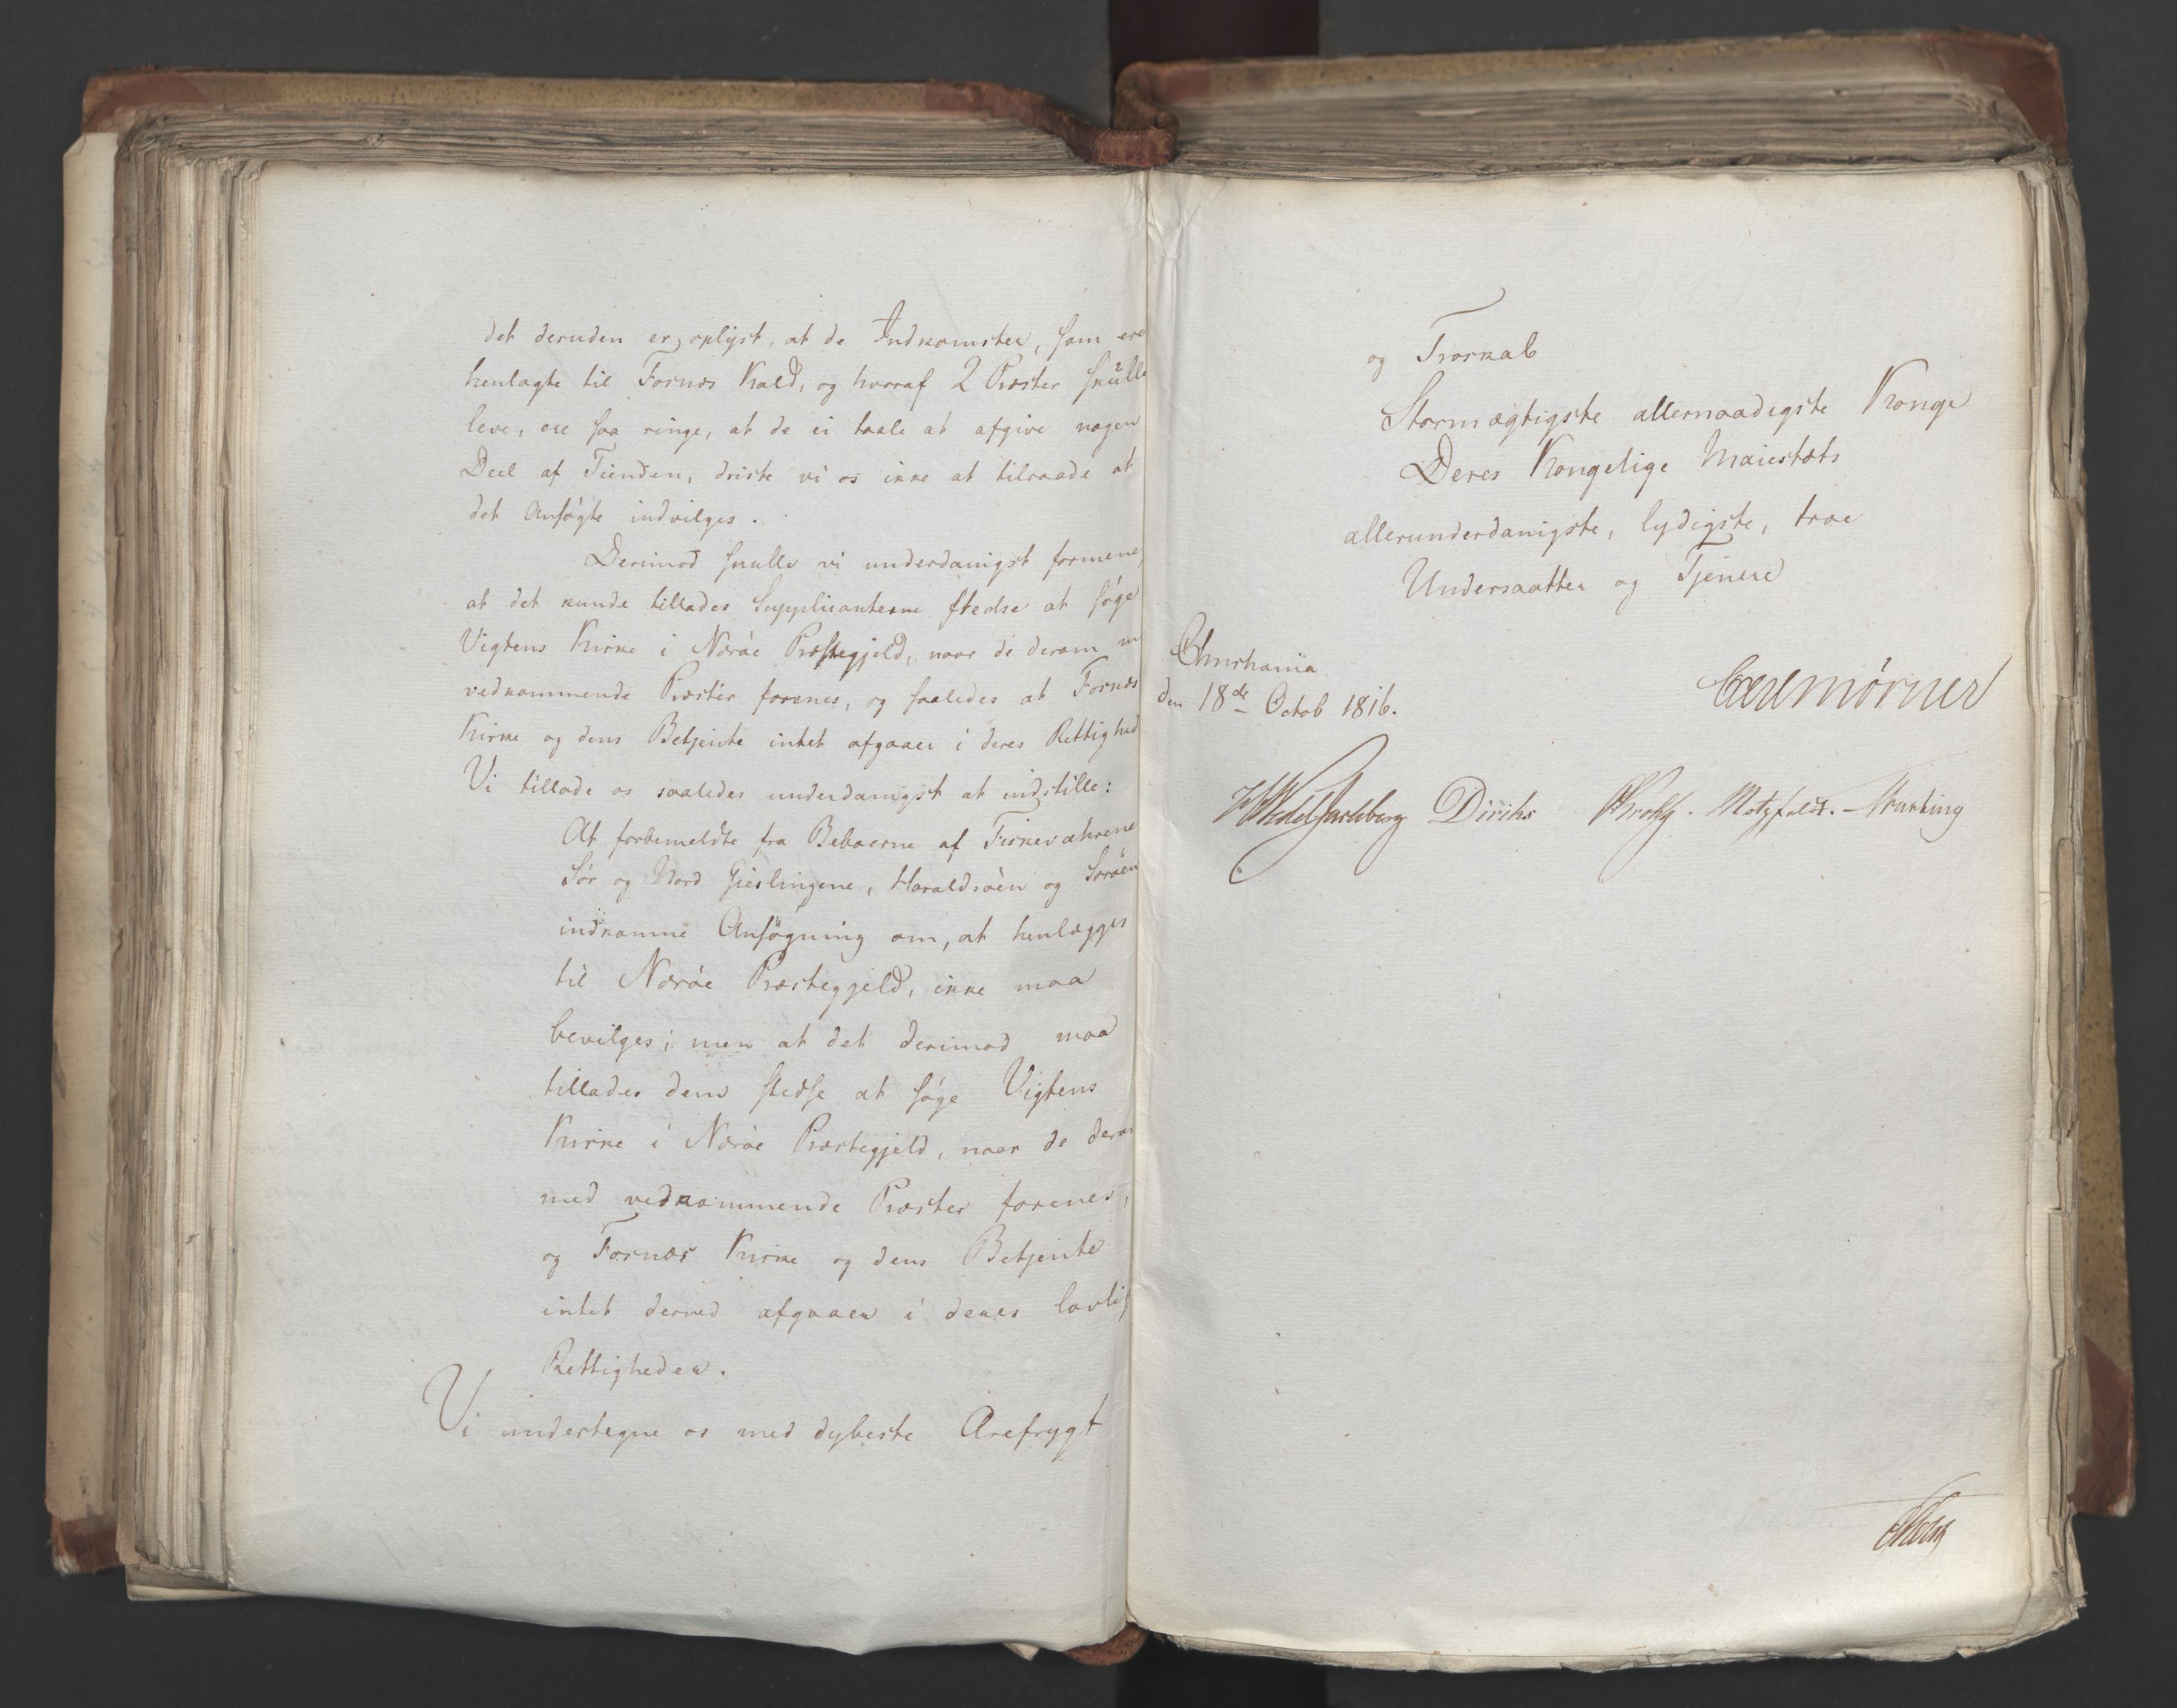 det deruden er oplyst, at de Indkomster, som ere
henlagte til Fosnæs Kald, og hvoraf 2 Præster skulle
leve, ere saa ringe, at de ei taale at afgive nogen
Deel af Tienden, driste vi os ikke at tilraade at
det Ansøgte indvilges.
Derimod skulle vi underdanigst formene,
at det kunde tillades Supplicanterne stedse at søge
Vigtens Kirke i Nærøe Præstegjeld, naar de derom m
vedkommende Præster forenes, og saaledes at Fosnæs
Kirke og dens Betjente intet afgaaer i deres Rettighed
Vi tillade os saaledes underdanigst at indstille:
At forbemeldte fra Beboerne af Fiskeværene
Sør og Nord Gieslingene, Haraldsøen og Sørøen
indkomne Ansøgning om, at henlægges
til Nærøe Præstegjeld, ikke maa
bevilges; men at det derimod maa
tillades dem stedse at søge Vigtens
Kirke i Nærøe Præstegjeld, naar de derom
med vedkommende Præster forenes,
og Fosnæs Kirke og dens Betjente
intet derved afgaaer i deres lovlig
Rettigheder.
Vi undertegne os med dybeste Ærefrygt
og Troskab
Stormægtigste allernaadigste Konge
Deres Kongelige Maiestæts
allerunderdanigste, lydigste, troe
Undersaatter og Tjenere
Christiania
den 18de Octob 1816.
Carl Mörner
HWedelJarlsberg Diriks Krohg. Motzfeldt.